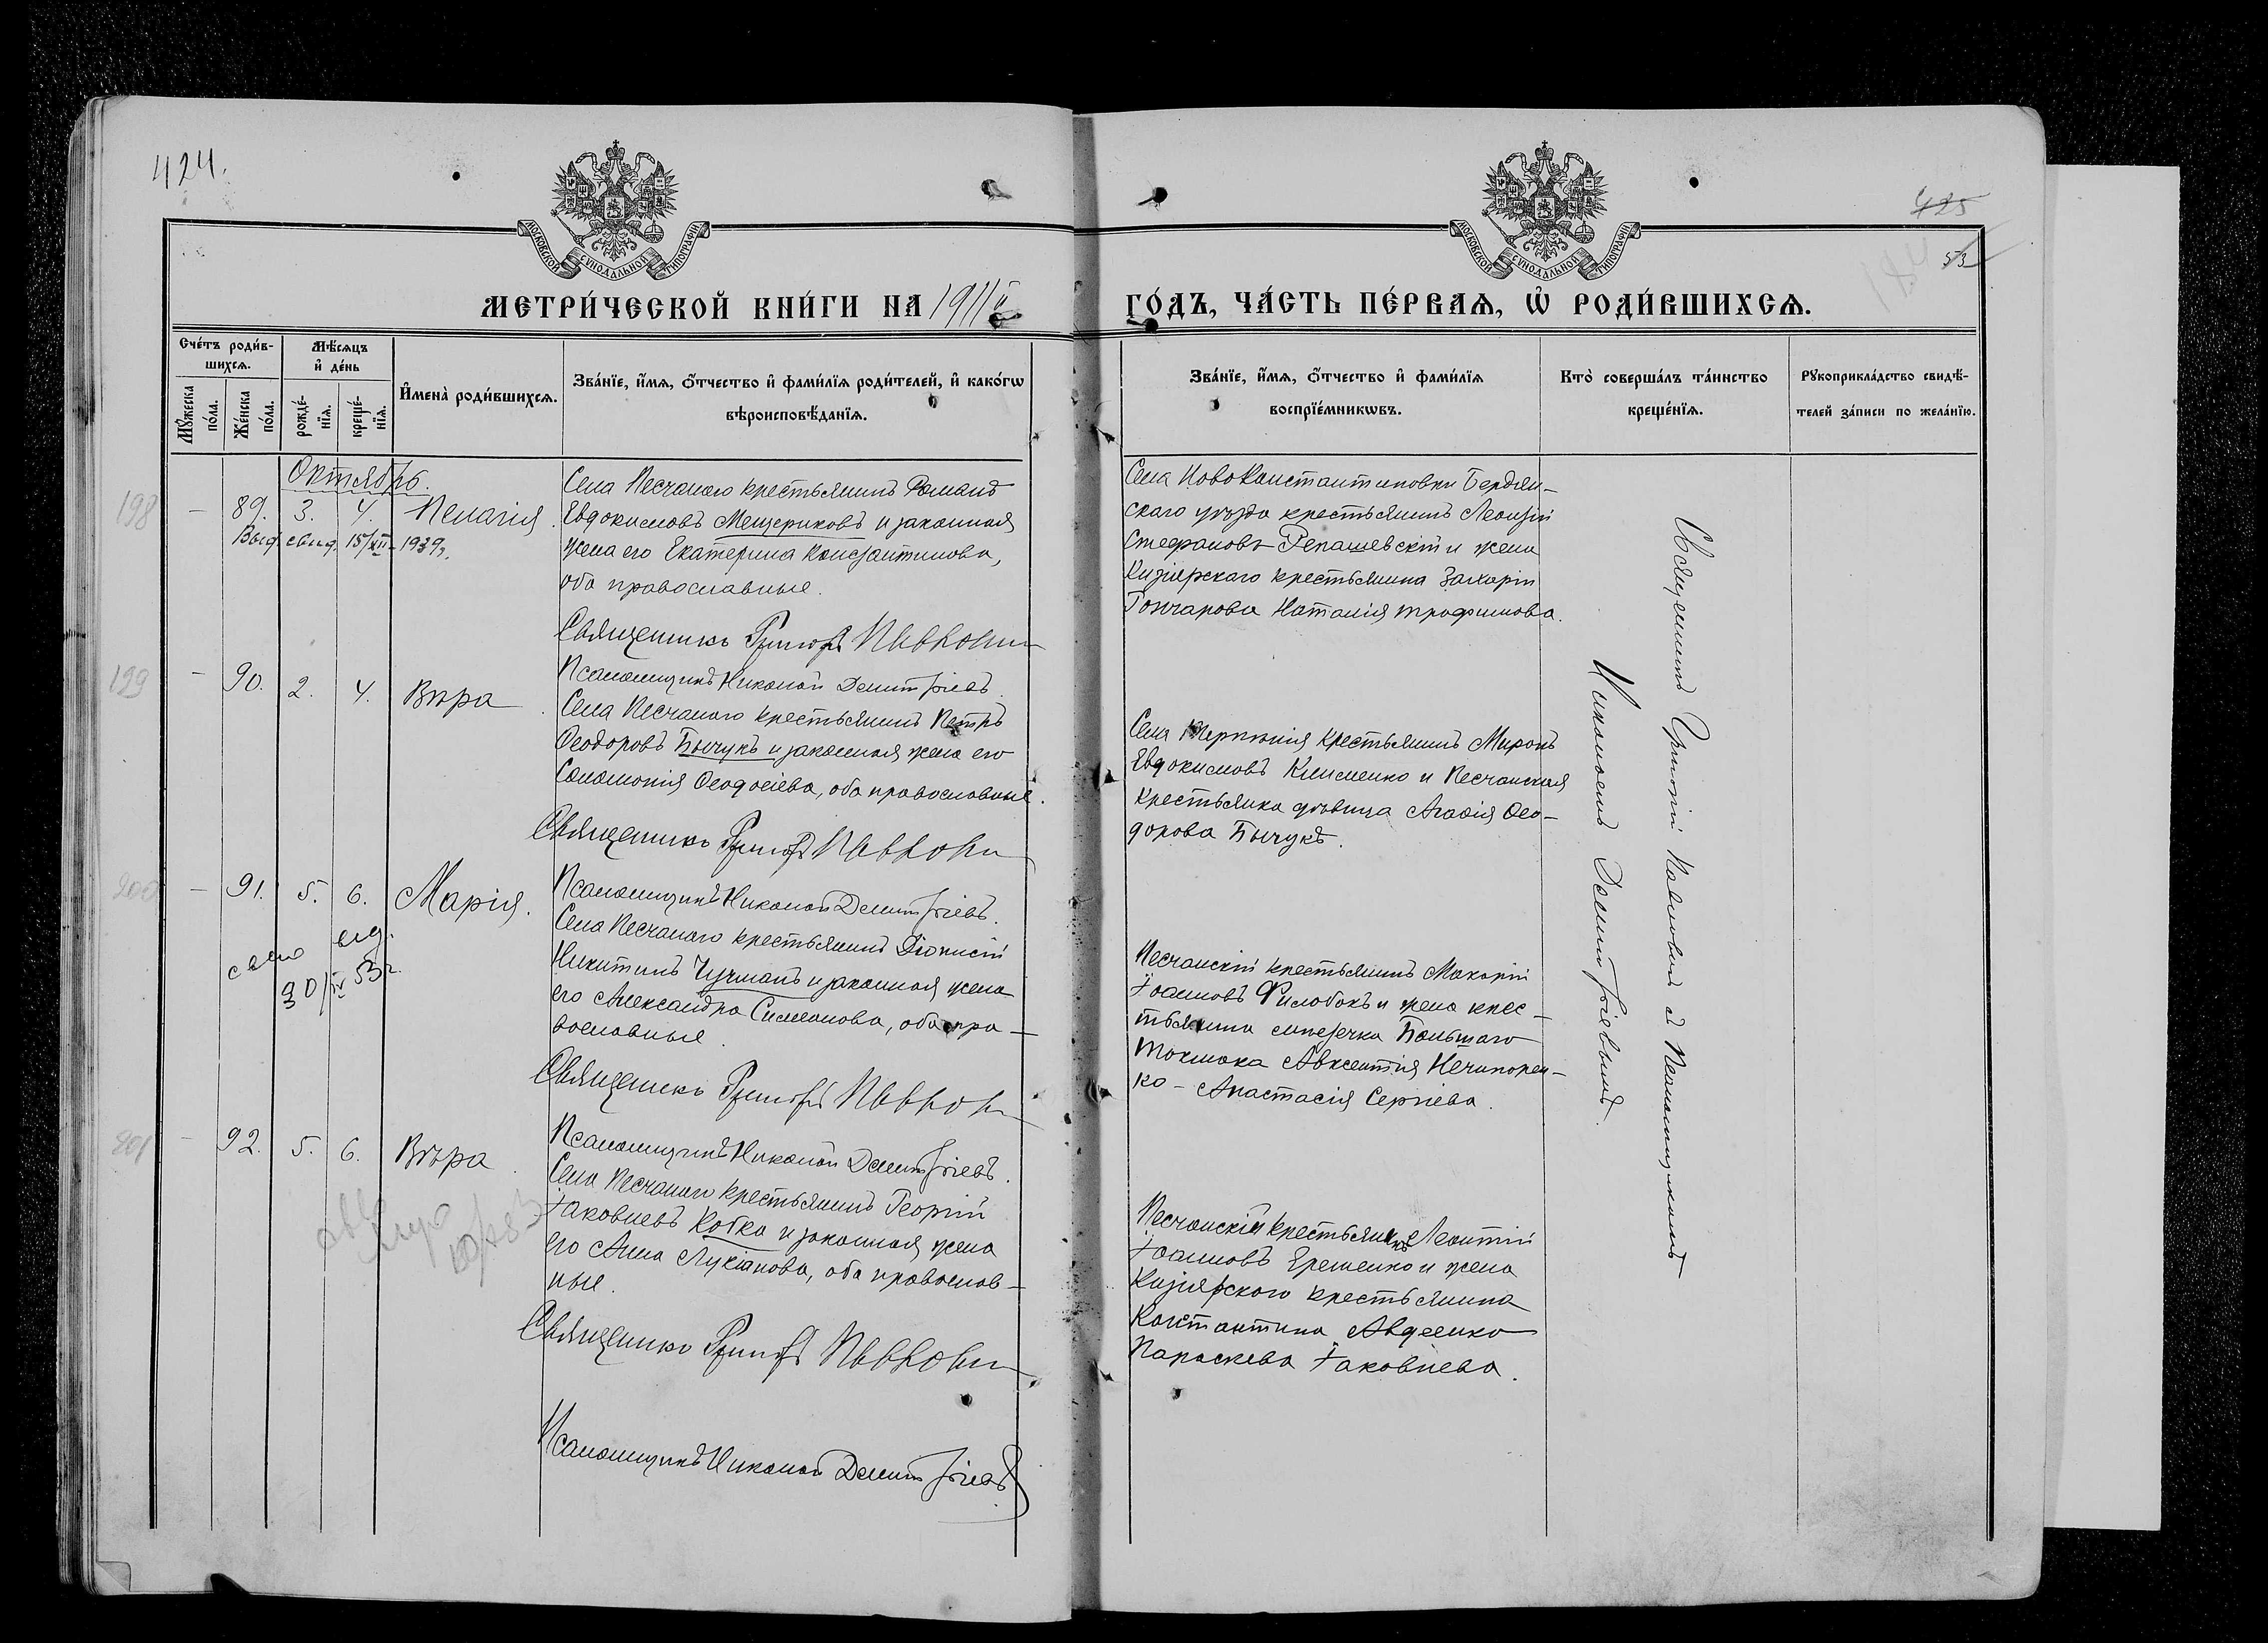 424.
425
53
МОСКОВСКОЙ СѴНОДАЛЬНОЙ ТИПОГРАФІИ
МОСКОВСКОЙ СѴНОДАЛЬНОЙ ТИПОГРАФІИ
МЕТРИ́ЧЕСКОЙ КНИ́ГИ НА 1911й
ГО́ДЪ, ЧА́СТЬ ПЕ́РВАЯ, Ѡ҆ РОДИ́ВШИХСЯ.
Сче́тъ роди́в-
шихся.
Мѣ́сяцъ
и҆ де́нь
Мꙋ́жеска по́ла.
Же́нска по́ла.
рожде́-
нїя.
креще́-
нїя.
И҆мена̀ роди́вшихся.
Зва́нїе, и҆́мя, ѻ҆́тчество и҆ фами́лїя роди́телей, и҆ како́гѡ
вѣроисповѣ́данїя.
Зва́нїе, и҆́мя, ѻ҆́тчество и҆ фами́лїя
воспрїе́мникѡвъ.
Кто̀ соверша́лъ та́инство
креще́нїя.
Рꙋкоприкла́дство свидѣ́-
телей за́писи по жела́нїю.
Октябрь.
198 — 89. 3. 4. Пелагія
Выд. свид. 15/XII-1939г.
Села Песчанаго крестьянинъ Романъ
Евдокимовъ Мещериковъ и законная
жена его Екатерина Константинова,
оба православные.
Священникъ Григорій Павловъ
Псаломщикъ Николай Димитріевъ.
Села НовоКонстантиновки Бердян-
скаго уѣзда крестьянинъ Леонтій
Стефановъ Репашевскій и жена
Кизіярскаго крестьянина Захарія
Гончарова Наталія Трофимова.
199 — 90. 2. 4. Вѣра
Села Песчанаго крестьянинъ Петръ
Ѳеодоровъ Бычукъ и законная жена его
Соломонія Ѳеодосіева, оба православные.
Священникъ Григорій Павловъ
Псаломщикъ Николай Димитріевъ.
Села Терпѣнія крестьянинъ Миронъ
Евдокимовъ Клименко и Песчанская
крестьянка дѣвица Агафія Ѳео-
дорова Бычукъ.
200 — 91. 5. 6. Марія.
30/IV 53г.
Села Песчанаго крестьянинъ Діонисій
Никитинъ Чучманъ и законная жена
его Александра Симеонова, оба пра-
вославные.
Священникъ Григорій Павловъ
Псаломщикъ Николай Димитріевъ.
Песчанскій крестьянинъ Макарій
Іоанновъ Филобокъ и жена крес-
тьянина мѣстечка Большаго
Токмака Авксентія Нечипорен-
ко - Анастасія Сергіева.
201 — 92. 5. 6. Вѣра
Села Песчанаго крестьянинъ Георгій
Іаковлевъ Котка и законная жена
его Анна Лукіанова, оба православ-
ные.
Священникъ Григорій Павловъ
Псаломщикъ Николай Димитріевъ
Песчанскій крестьянинъ Леонтій
Іоанновъ Еременко и жена
Кизіярскаго крестьянина
Константина Авдеенко
Параскева Іаковлева.
Священникъ Григорій Павловъ съ Псаломщикомъ
Николаемъ Димитріевымъ.